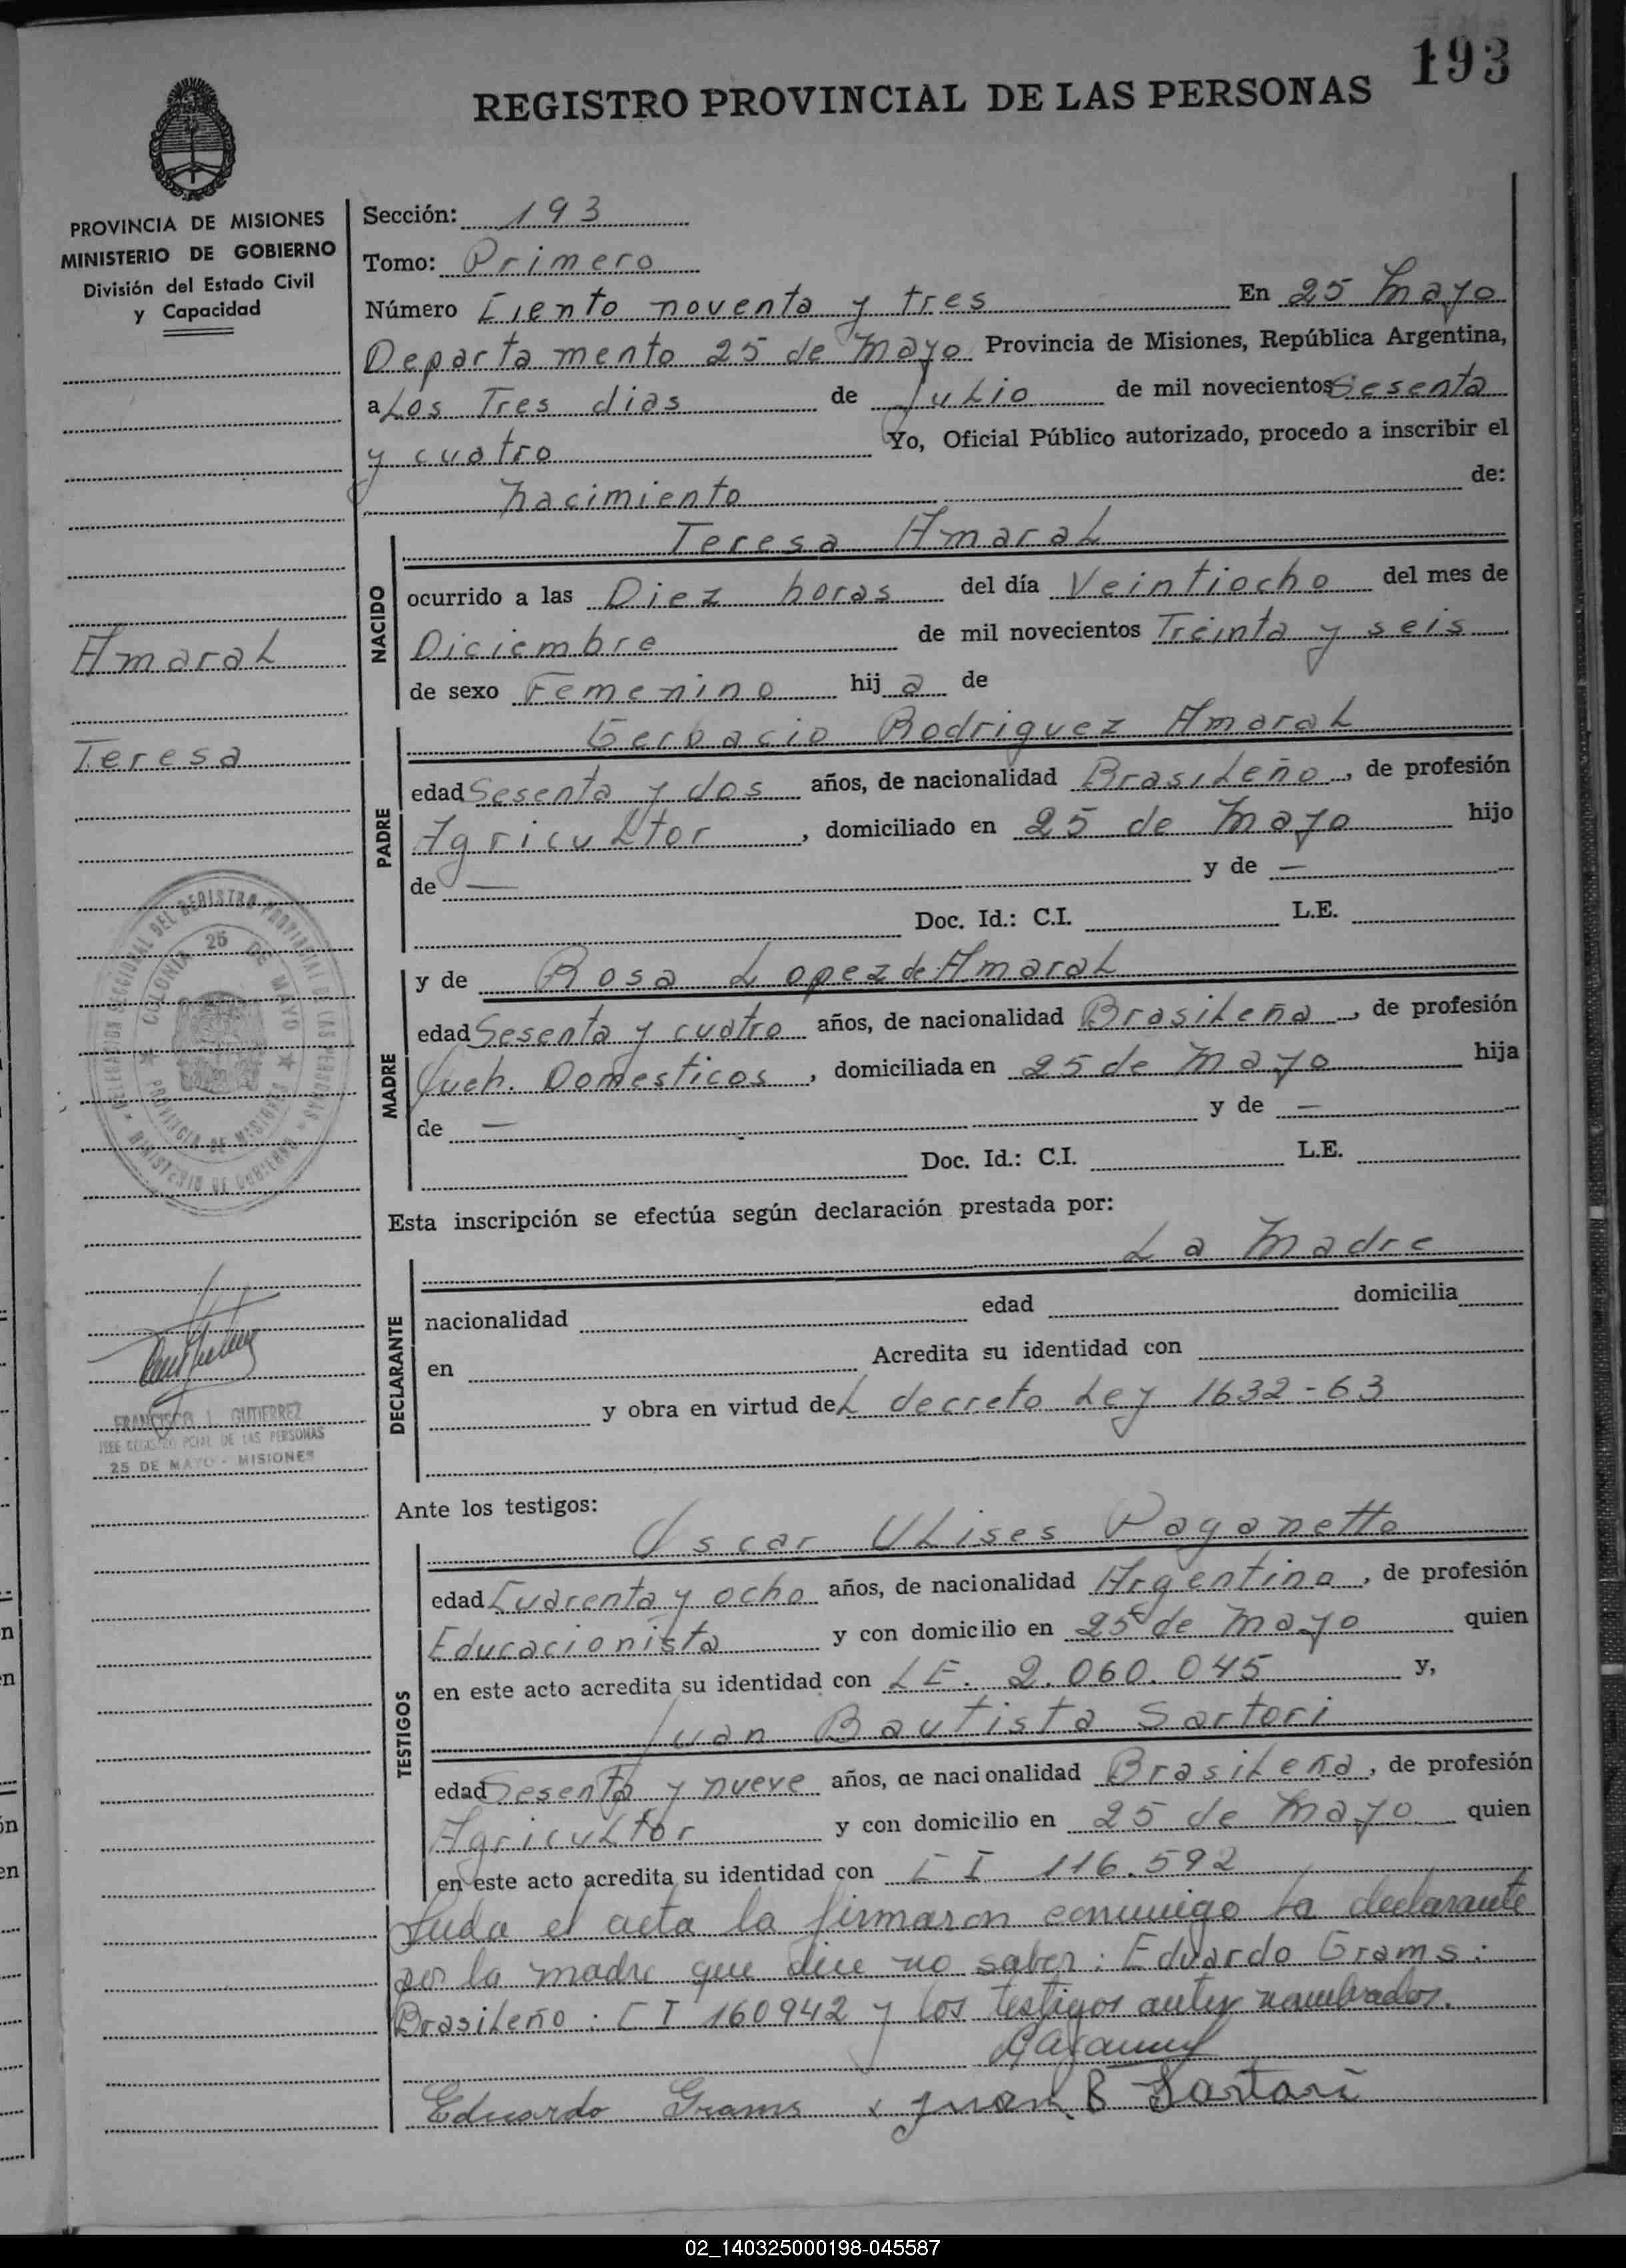 193
REGISTRO PROVINCIAL DE LAS PERSONAS
PROVINCIA DE MISIONES
MINISTERIO DE GOBIERNO
División del Estado Civil
y Capacidad
Amaral
Teresa
DELEGACION SECCIONAL DEL REGISTRO PROVINCIAL DE LAS PERSONAS
MINISTERIO DE GOBIERNO
COLONIA 25 DE MAYO
PROVINCIA DE MISIONES
FRANCISCO L. GUTIERREZ
JEFE REGISTRO PCIAL DE LAS PERSONAS
25 DE MAYO - MISIONES
Sección: 193
Tomo: Primero
Número Ciento noventa y tres En 25 Mayo
Departamento 25 de Mayo Provincia de Misiones, República Argentina,
a Los Tres dias de Julio de mil novecientos Sesenta
y cuatro Yo, Oficial Público autorizado, procedo a inscribir el
nacimiento de:
NACIDO
Teresa Amaral
ocurrido a las Diez horas del día Veintiocho del mes de
Diciembre de mil novecientos Treinta y seis
de sexo Femenino hija de
PADRE
Gerbacio Rodriguez Amaral
edad Sesenta y dos años, de nacionalidad Brasileño, de profesión
Agricultor, domiciliado en 25 de Mayo hijo
de — y de —
Doc. Id.: C.I. L.E.
MADRE
y de Rosa Lopez de Amaral
edad Sesenta y cuatro años, de nacionalidad Brasileña, de profesión
Queh. Domesticos, domiciliada en 25 de Mayo hija
de — y de —
Doc. Id.: C.I. L.E.
Esta inscripción se efectúa según declaración prestada por:
DECLARANTE
La Madre
nacionalidad edad domicilia
en Acredita su identidad con
y obra en virtud del decreto Ley 1632-63
Ante los testigos:
TESTIGOS
Oscar Ulises Paganetto
edad Cuarenta y ocho años, de nacionalidad Argentina, de profesión
Educacionista y con domicilio en 25 de Mayo quien
en este acto acredita su identidad con LE. 2.060.045 y,
Juan Bautista Sartori
edad Sesenta y nueve años, de nacionalidad Brasileña, de profesión
Agricultor y con domicilio en 25 de Mayo quien
en este acto acredita su identidad con CI 116.592
Leida el acta la firmaron conmigo la declarante
por la madre que dice no saber: Eduardo Grams:
Brasileño: CI 160942 y los testigos antes nombrados.
Eduardo Grams x Juan B Sartori
02_140325000198-045587